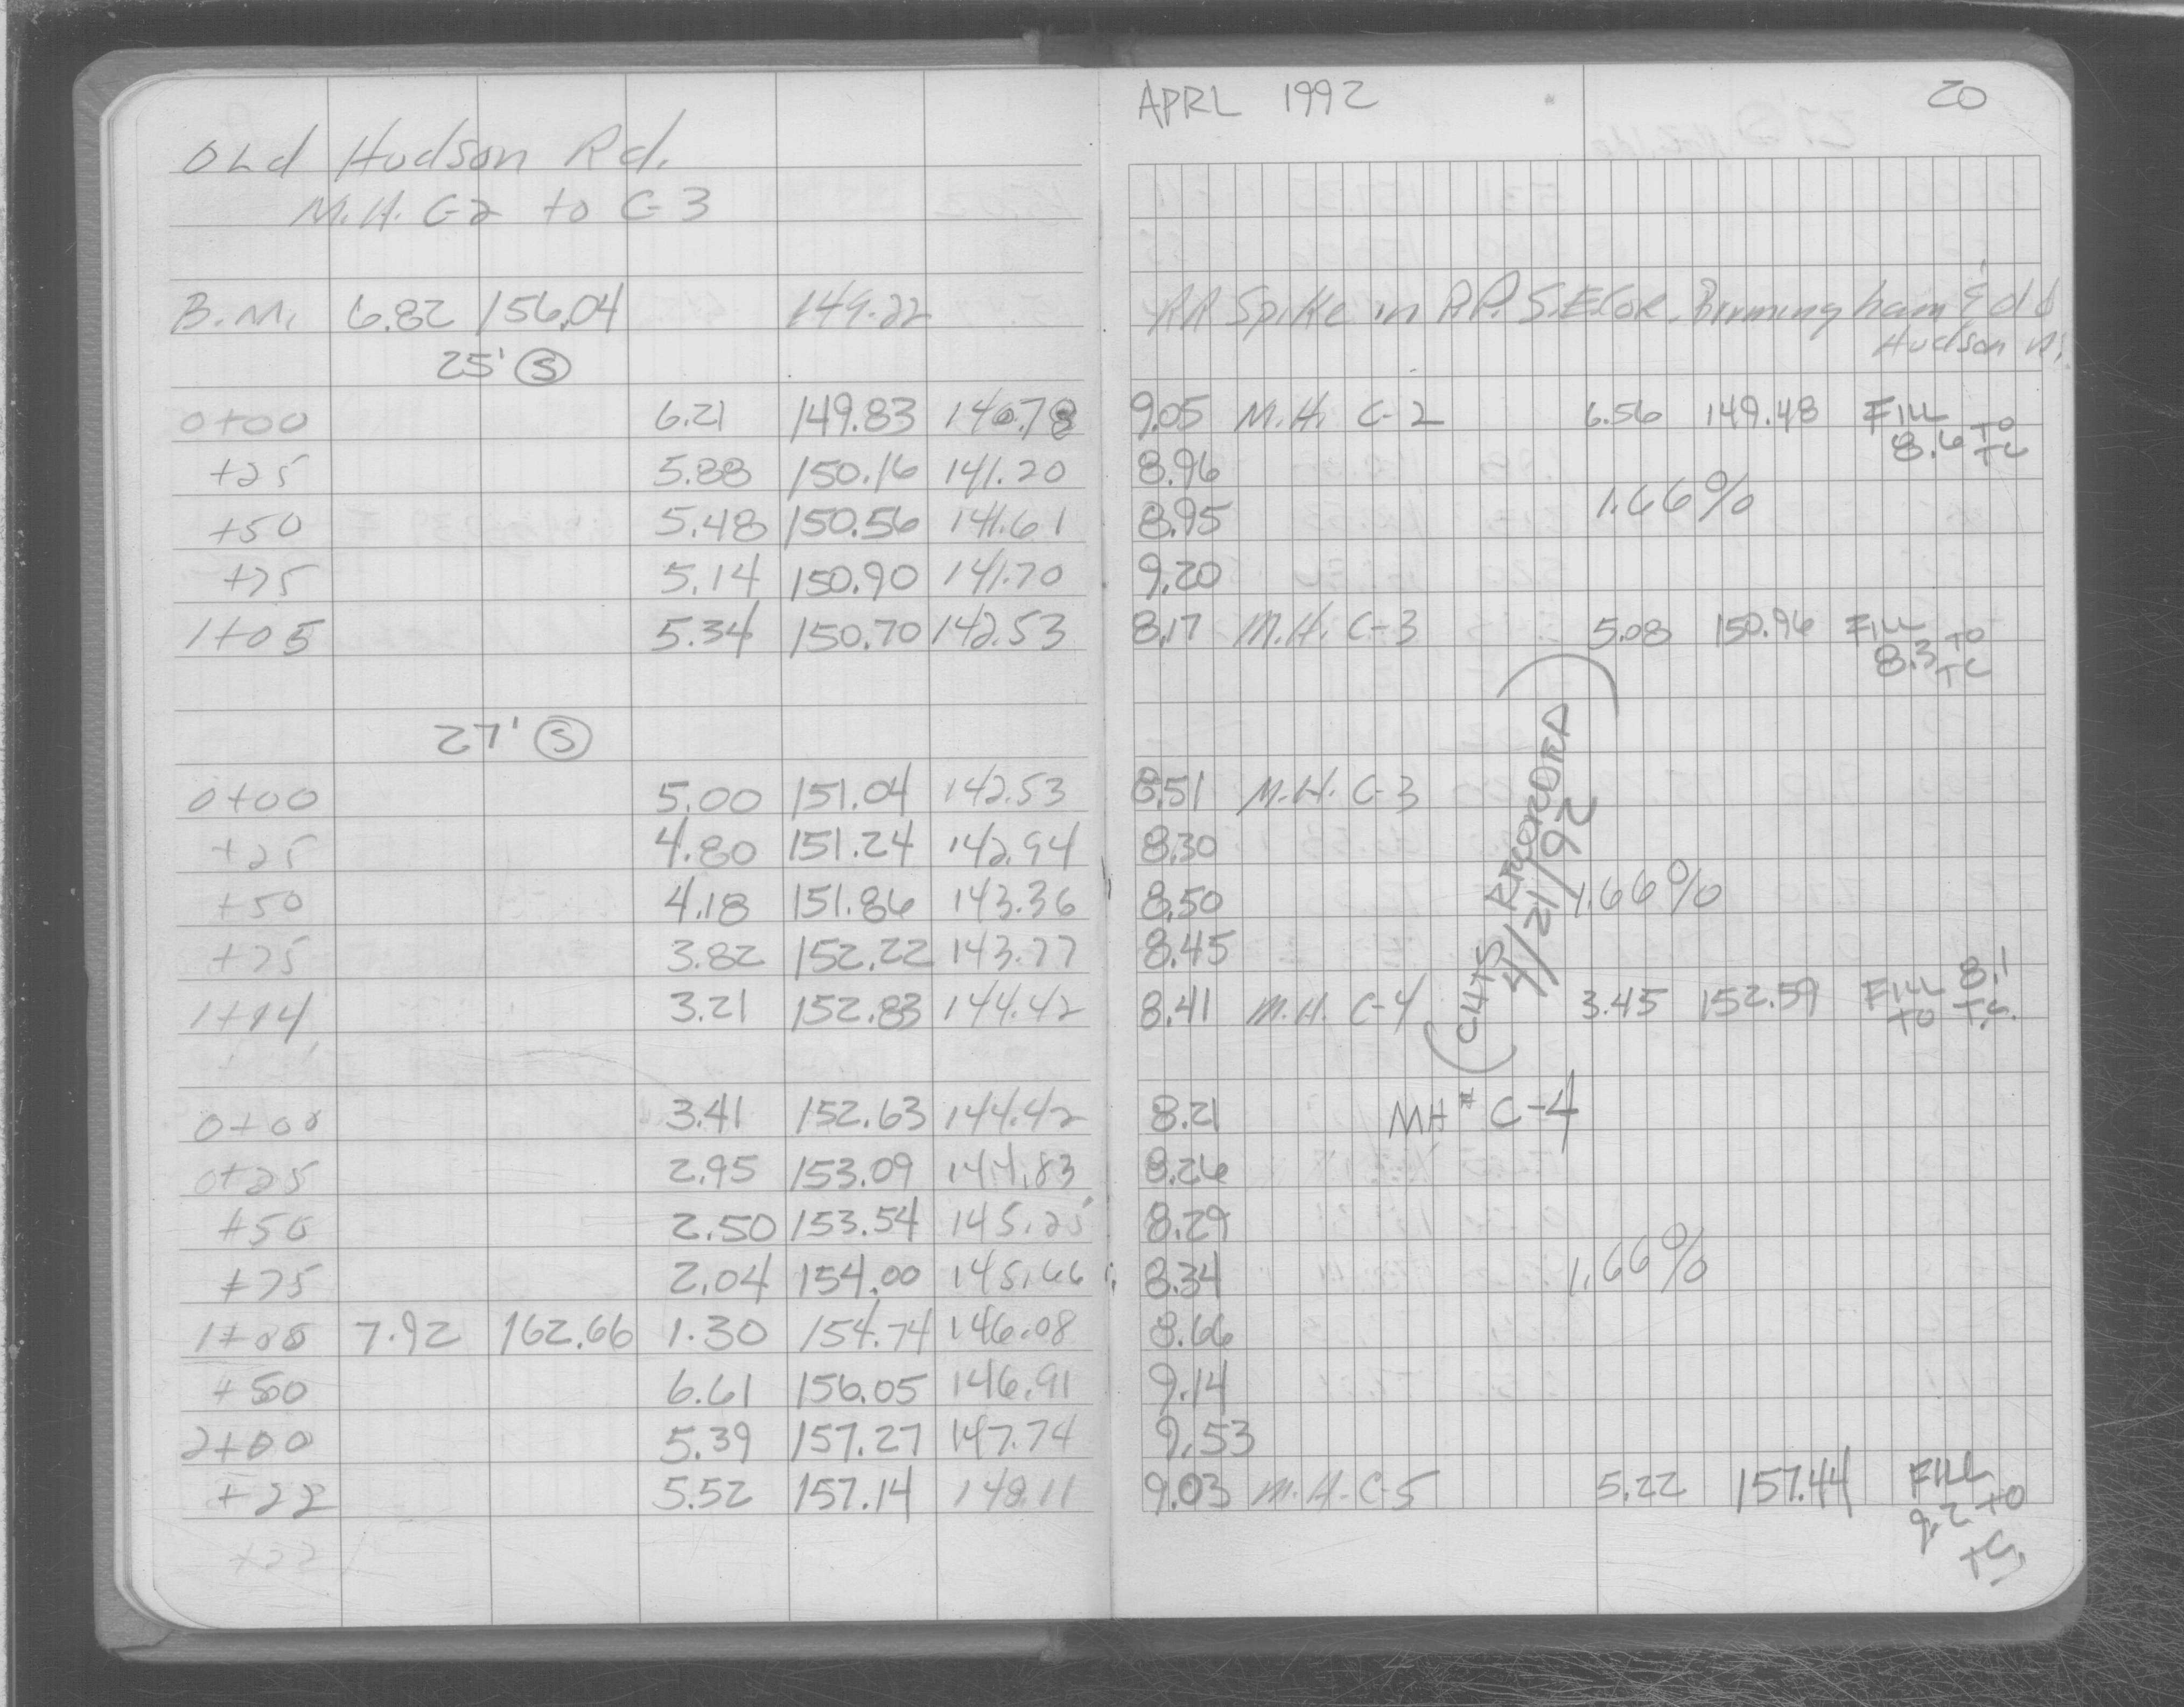 APRL 1992 20
OLd Hudson Rd.
M.H. C-2 to C-3
B.M. 6.82 156.04 149.22 RR Spike in P.P. S.E. Cor. Birmingham & Old
Hudson Rd.
25' S
0+00 6.21 149.83 140.78 9.05 M.H. C-2 6.56 149.48 FILL
8.6 TO TC
+25 5.88 150.16 141.20 8.96
1.66%
+50 5.48 150.56 141.61 8.95
+75 5.14 150.90 141.70 9.20
1+05 5.34 150.70 142.53 8.17 M.H. C-3 5.08 150.96 FILL
8.3 TO TC
27' S
0+00 5.00 151.04 142.53 8.51 M.H. C-3
+25 4.80 151.24 142.94 8.30
+50 4.18 151.86 143.36 8.50 1.66%
+75 3.82 152.22 143.77 8.45
1+14 3.21 152.83 144.42 8.41 M.H. C-4 3.45 152.59 FILL 8.1
TO T.C.
(CUTS RECORDED)
4/21/92
0+00 3.41 152.63 144.42 8.21 MH# C-4
0+25 2.95 153.09 144.83 8.26
+50 2.50 153.54 145.25 8.29
+75 2.04 154.00 145.66 8.34 1.66%
1+00 7.92 162.66 1.30 154.74 146.08 8.66
+50 6.61 156.05 146.91 9.14
2+00 5.39 157.27 147.74 9.53
+22 5.52 157.14 148.11 9.03 M.H. C-5 5.22 157.44 FILL
9.2 TO
TC
+22